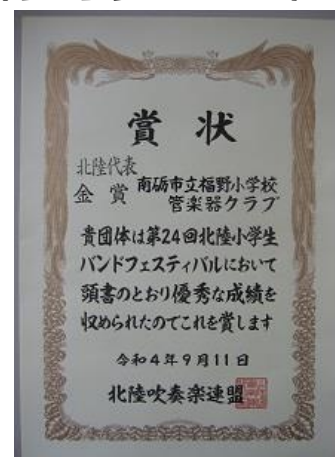 賞状
北陸代表
金賞
南砺市立福野小学校
管楽器クラブ
貴団体は第24回北陸小学生
バンドフェスティバルにおいて
頭書のとおり優秀な成績を
収められたのでこれを賞します
令和4年9月11日
北陸吹奏楽連盟